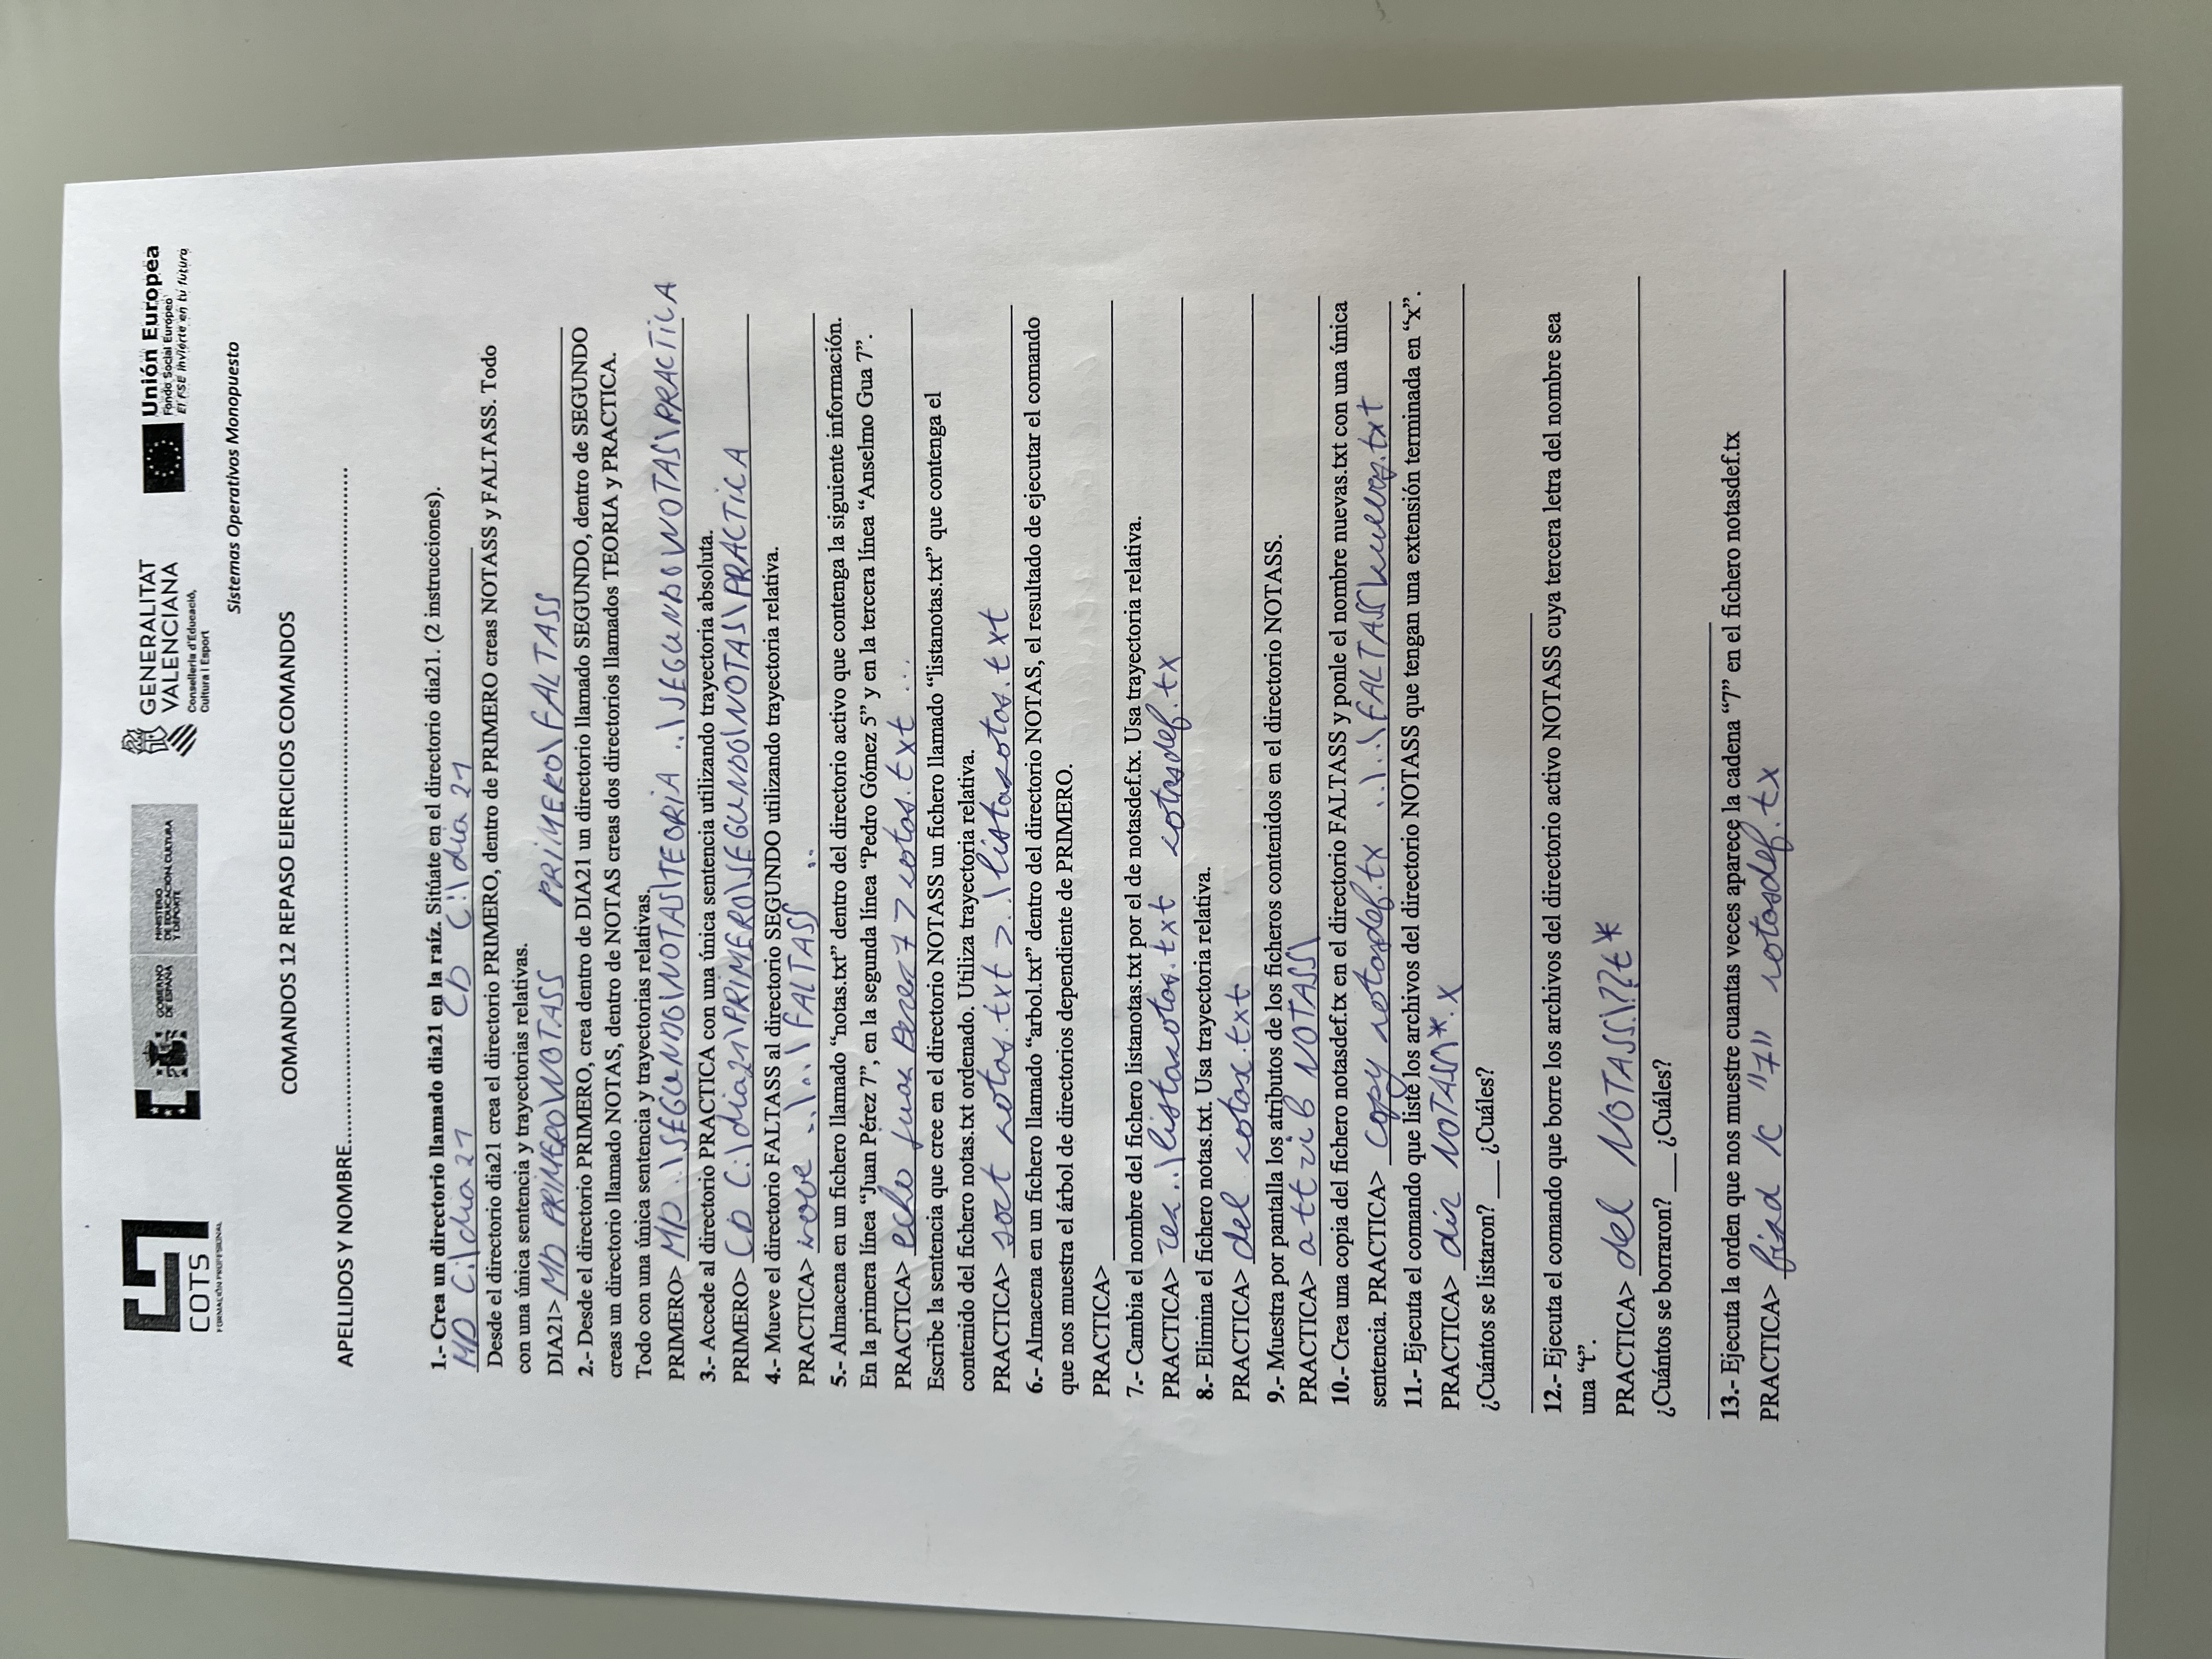 COTS
FORMACIÓN PROFESIONAL
GOBIERNO DE ESPAÑA
MINISTERIO DE EDUCACIÓN, CULTURA Y DEPORTE
GENERALITAT VALENCIANA
Conselleria d'Educació, Cultura i Esport
Unión Europea
Fondo Social Europeo
El FSE invierte en tu futuro
Sistemas Operativos Monopuesto
COMANDOS 12 REPASO EJERCICIOS COMANDOS
APELLIDOS Y NOMBRE..........................................................................................................
1.- Crea un directorio llamado dia21 en la raíz. Sitúate en el directorio dia21. (2 instrucciones).
MD C:\dia 21 CD C:\dia 21
Desde el directorio dia21 crea el directorio PRIMERO, dentro de PRIMERO creas NOTASS y FALTASS. Todo
con una única sentencia y trayectorias relativas.
DIA21> MD PRIMERO\NOTASS PRIMERO\FALTASS
2.- Desde el directorio PRIMERO, crea dentro de DIA21 un directorio llamado SEGUNDO, dentro de SEGUNDO
creas un directorio llamado NOTAS, dentro de NOTAS creas dos directorios llamados TEORIA y PRACTICA.
Todo con una única sentencia y trayectorias relativas.
PRIMERO> MD ..\SEGUNDO\NOTAS\TEORIA ..\SEGUNDO\NOTAS\PRACTICA
3.- Accede al directorio PRACTICA con una única sentencia utilizando trayectoria absoluta.
PRIMERO> CD C:\dia21\PRIMERO\SEGUNDO\NOTAS\PRACTICA
4.- Mueve el directorio FALTASS al directorio SEGUNDO utilizando trayectoria relativa.
PRACTICA> move ..\..\FALTASS ..
5.- Almacena en un fichero llamado “notas.txt” dentro del directorio activo que contenga la siguiente información.
En la primera línea “Juan Pérez 7”, en la segunda línea “Pedro Gómez 5” y en la tercera línea “Anselmo Gua 7”.
PRACTICA> echo juan Perez 7 > notas.txt ...
Escribe la sentencia que cree en el directorio NOTASS un fichero llamado “listanotas.txt” que contenga el
contenido del fichero notas.txt ordenado. Utiliza trayectoria relativa.
PRACTICA> sort notas.txt > ..\listanotas.txt
6.- Almacena en un fichero llamado “arbol.txt” dentro del directorio NOTAS, el resultado de ejecutar el comando
que nos muestra el árbol de directorios dependiente de PRIMERO.
PRACTICA>
7.- Cambia el nombre del fichero listanotas.txt por el de notasdef.tx. Usa trayectoria relativa.
PRACTICA> ren ..\listanotas.txt notasdef.tx
8.- Elimina el fichero notas.txt. Usa trayectoria relativa.
PRACTICA> del notas.txt
9.- Muestra por pantalla los atributos de los ficheros contenidos en el directorio NOTASS.
PRACTICA> attrib NOTASS\
10.- Crea una copia del fichero notasdef.tx en el directorio FALTASS y ponle el nombre nuevas.txt con una única
sentencia. PRACTICA> copy notasdef.tx ..\..\FALTASS\nuevas.txt
11.- Ejecuta el comando que liste los archivos del directorio NOTASS que tengan una extensión terminada en “x”.
PRACTICA> dir NOTASS\*.x
¿Cuántos se listaron? ___ ¿Cuáles?
12.- Ejecuta el comando que borre los archivos del directorio activo NOTASS cuya tercera letra del nombre sea
una “t”.
PRACTICA> del NOTASS\??t*
¿Cuántos se borraron? ___ ¿Cuáles?
13.- Ejecuta la orden que nos muestre cuantas veces aparece la cadena “7” en el fichero notasdef.tx
PRACTICA> find /c "7" notasdef.tx